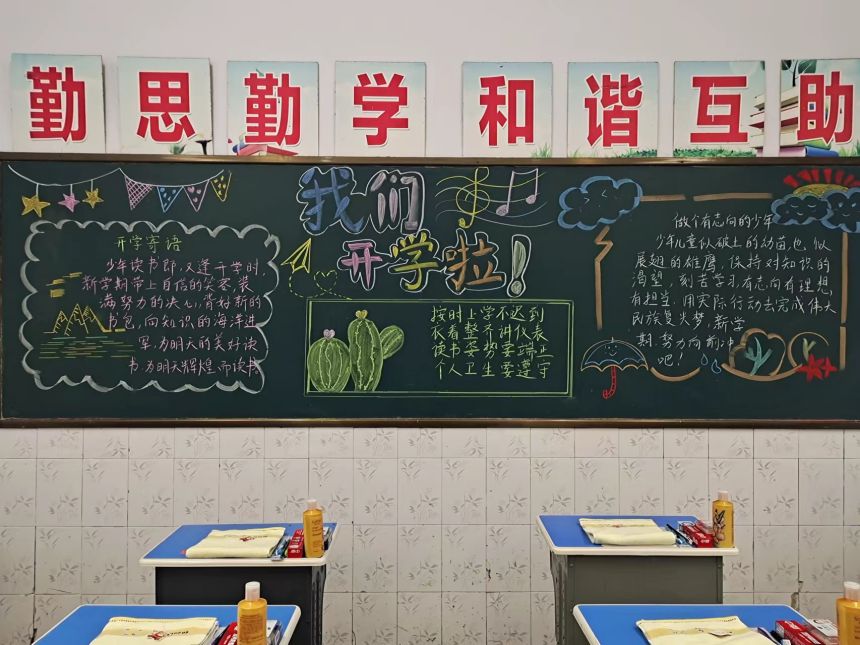 勤思勤学和谐互助
我们
开学啦！
开学寄语
少年读书郎，又逢开学时，
新学期带上自信的笑容，装
满努力的决心，背好新的
书包，向知识的海洋进
军，为明天的美好读
书，为明天辉煌而读书
按时上学不迟到
衣着整齐讲仪表
读书姿势要端正
个人卫生要遵守
做个有志向的少年
少年儿童似破土的幼苗也似
展翅的雄鹰，保持对知识的
渴望，刻苦学习，有志向有理想，
有担当，用实际行动去完成伟大
民族复兴梦，新学
期，努力向前冲
吧！